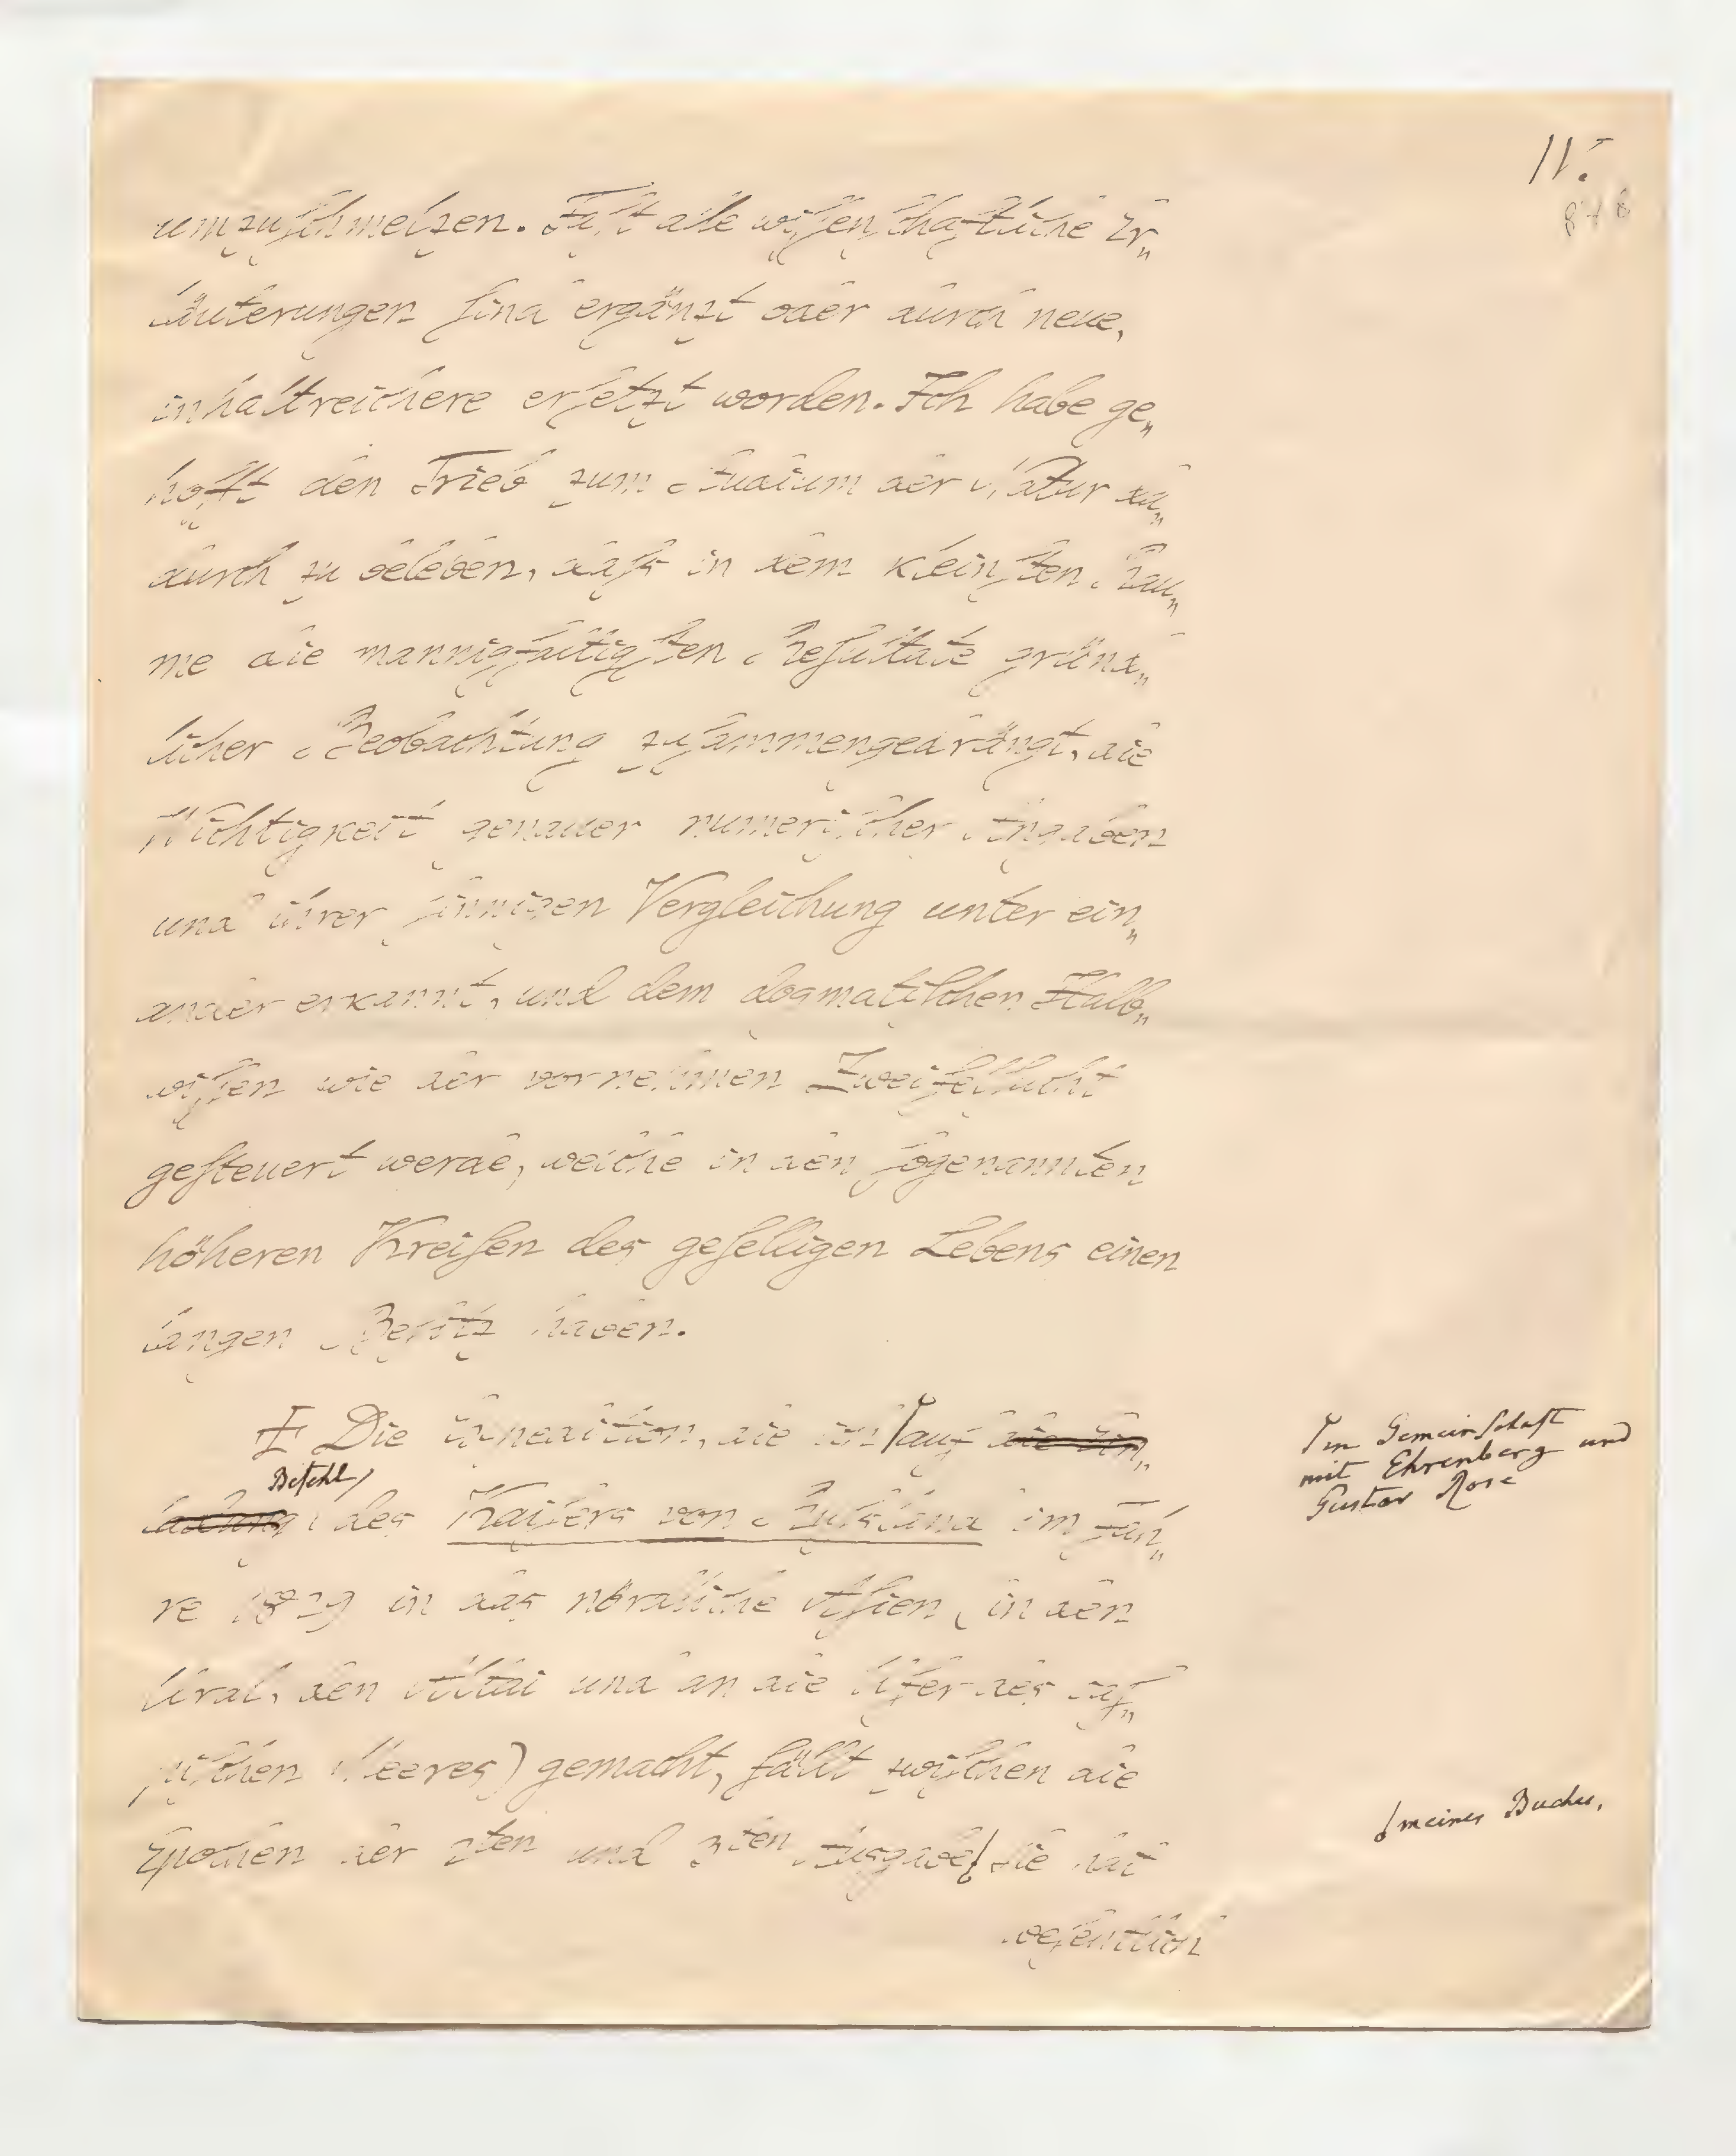 IV.
umzuſchmelzen. Faſt alle wiſſenſchaftliche Er„
läuterungen ſind ergänzt oder durch neue,
inhaltreichere erſetzt worden. Ich habe ge„
hofft den Trieb zum Studium der Natur da„
durch zu beleben, daſs in dem kleinſten Rau„
me die mannigfaltigſten Reſultate gründ„
licher Beobachtung zuſammengedrängt, die
Wichtigkeit genauer numeriſcher Angaben
und ihrer ſinnigen Vergleichung unter ein„
ander erkannt, und dem dogmatiſchen Halb„
wiſſen wie der vornehmen Zweifelſucht
geſteuert werde, welche in den ſogenannten
höheren Kreiſen des geſelligen Lebens einen
langen Beſitz haben.
Die Expedition, die ich auf die Ein„
Befehl
ladung des Kaiſers von Ruſsland im Jah„
re 1829 in das nördliche Aſien (in den
Ural, den Altai und an die Ufer des Caſ„
piſchen Meeres) gemacht, fällt zwiſchen die
Epochen der 2ten und 3ten Ausgabe Sie hat
weſentlich
in Gemeinſchaft
mit Ehrenberg und
Gustav Rose
meines Buches.